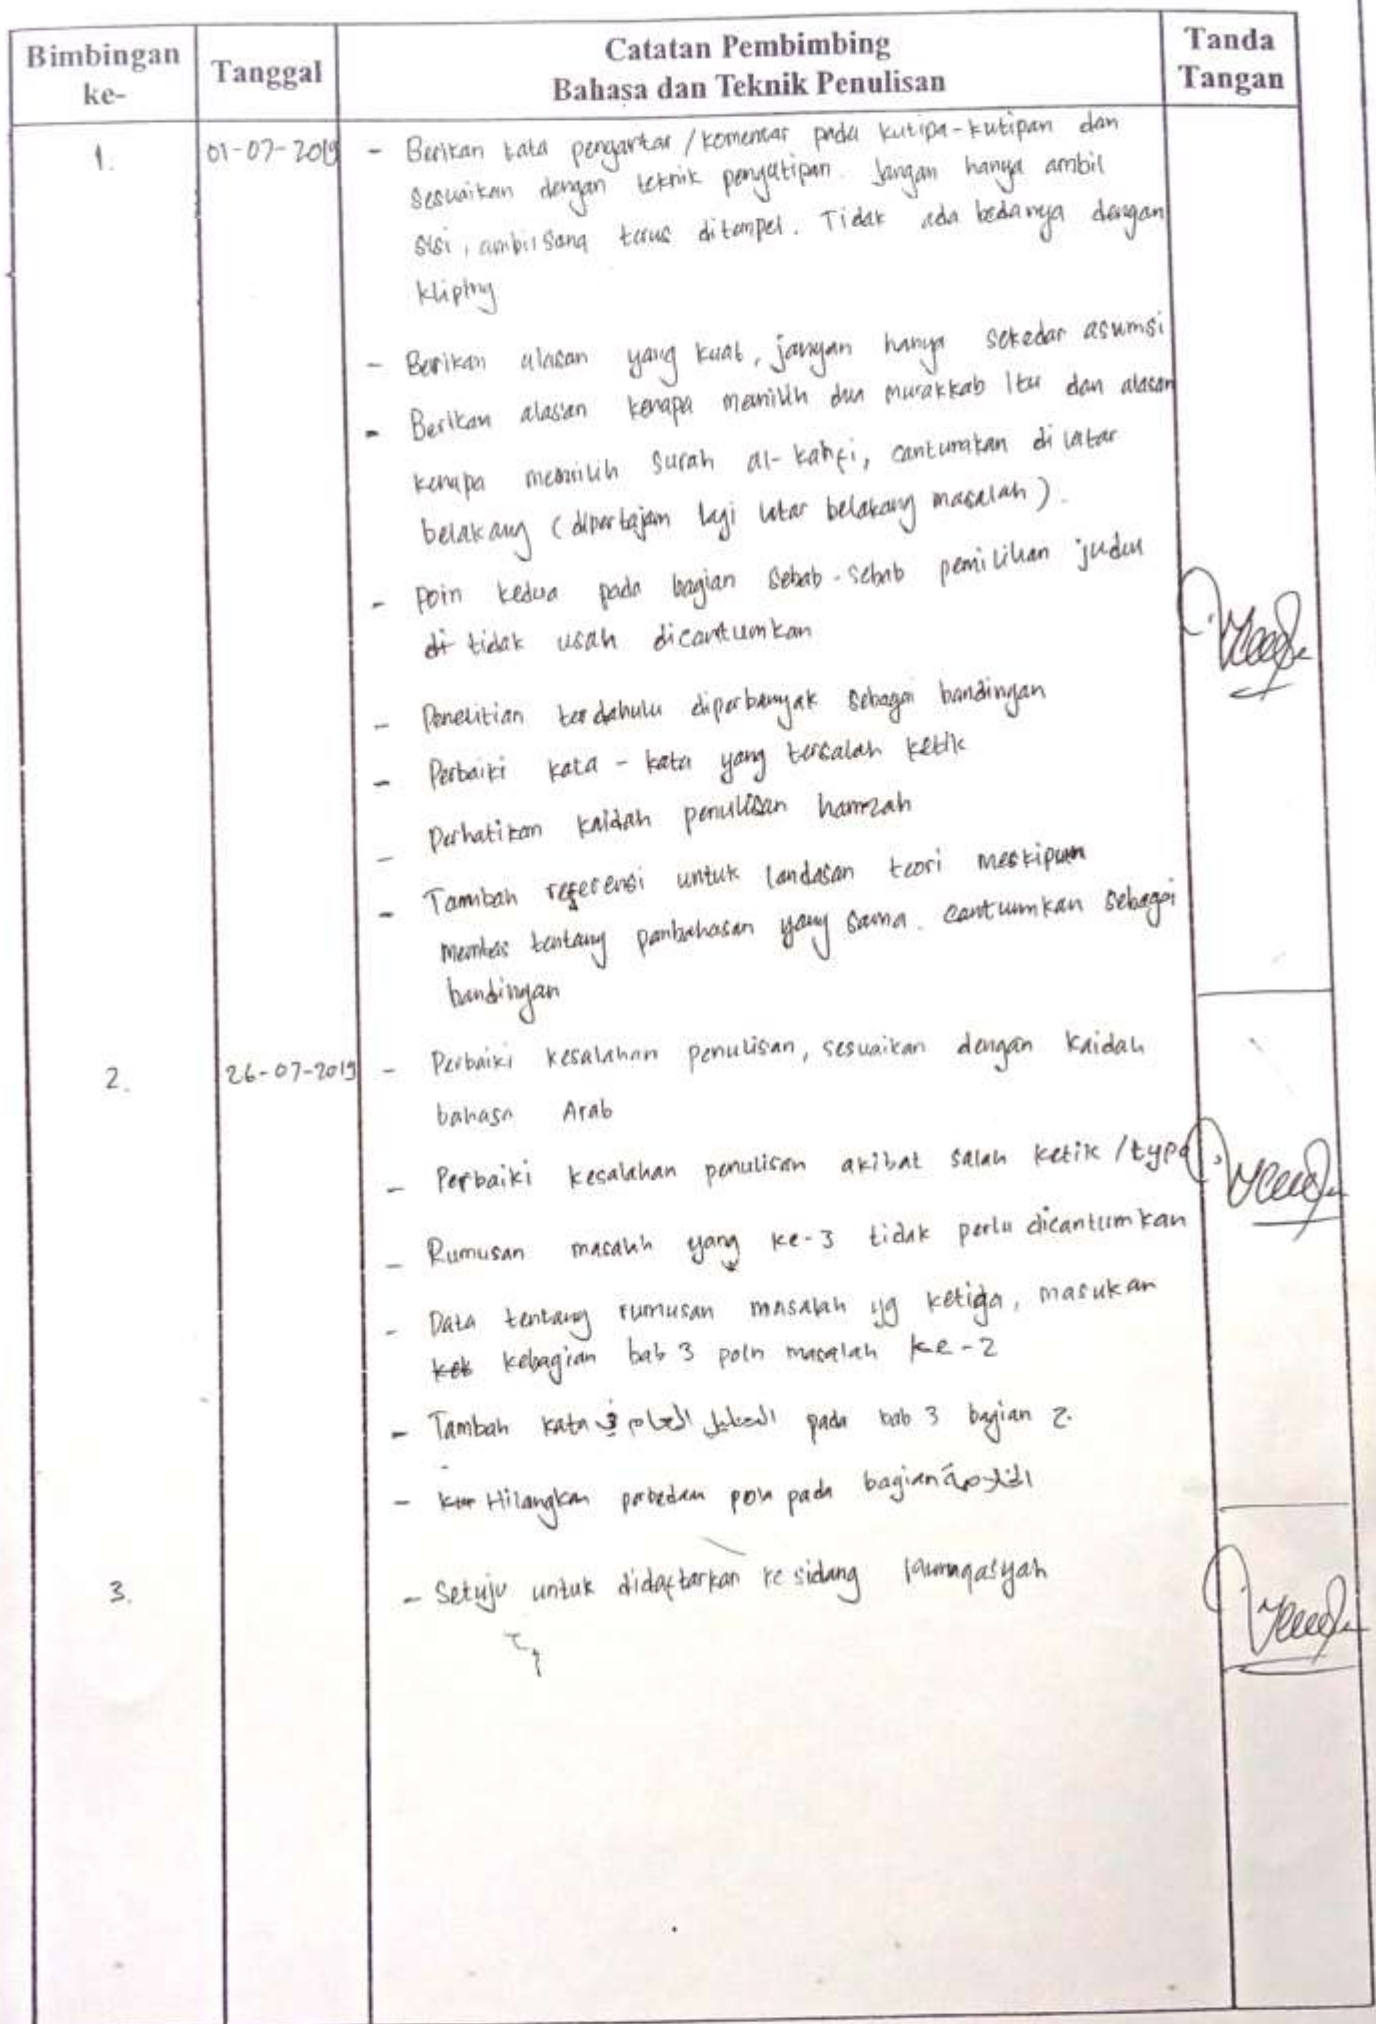 Bimbingan ke-
Tanggal
Catatan Pembimbing
Bahasa dan Teknik Penulisan
Tanda Tangan
1.
01-07-2019
- Berikan kata pengantar / komentar pada kutipa-kutipan dan
sesuaikan dengan teknik pengutipan. Jangan hanya ambil
sisi, ambil sana terus ditempel. Tidak ada bedanya dengan
kliping
- Berikan alasan yang kuat, jangan hanya sekedar asumsi
- Berikan alasan kenapa memilih dua murakkab itu dan alasan
kenapa memilih surah al-kahfi, cantumkan di latar
belakang (dipertajam lagi latar belakang masalah).
- Poin kedua pada bagian sebab-sebab pemilihan judul
di tidak usah dicantumkan
- Penelitian terdahulu diperbanyak sebagai bandingan
- Perbaiki kata-kata yang tersalah ketik
- Perhatikan kaidah penulisan hamzah
- Tambah referensi untuk landasan teori meskipun
membas tentang pembahasan yang sama. Cantumkan sebagai
bandingan
2.
26-07-2019
- Perbaiki kesalahan penulisan, sesuaikan dengan kaidah
bahasa Arab
- Perbaiki kesalahan penulisan akibat salah ketik / typo
- Rumusan masalah yang ke-3 tidak perlu dicantumkan
- Data tentang rumusan masalah yg ketiga, masukan
keb kebagian bab 3 poin masalah ke-2
- Tambah kata في pada bab 3 bagian 2.
- Hilangkan perbedaan poin pada bagian
3.
- Setuju untuk didaftarkan ke sidang munaqasyah